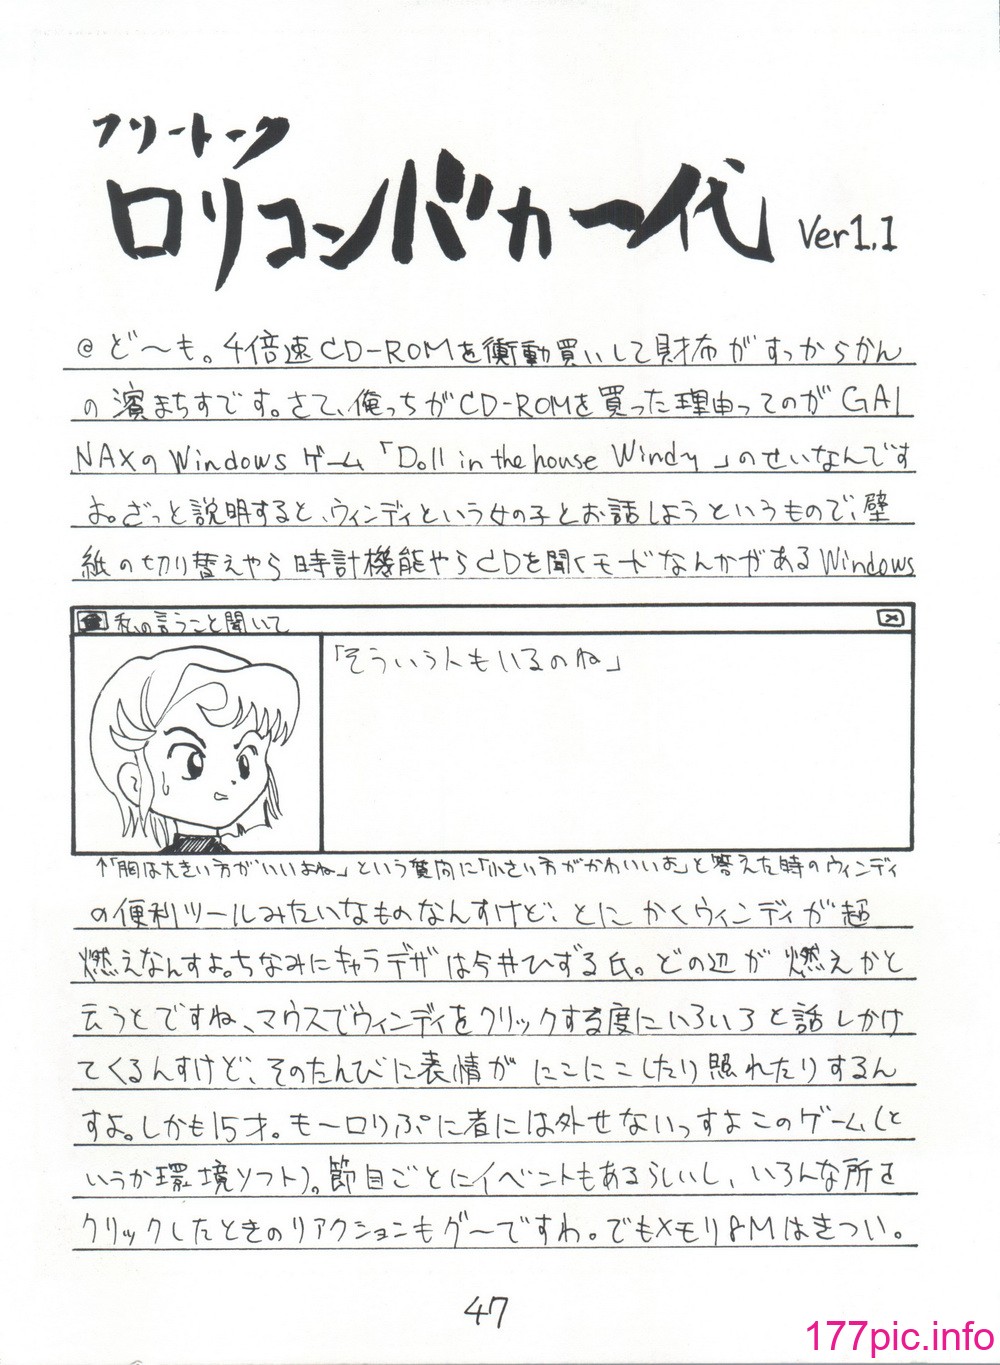 フリートーク
ロリコンバカ一代 Ver1.1
@ど〜も。4倍速CD-ROMを衝動買いして財布がすっからかん
の濱まちすです。さて、俺っちがCD-ROMを買った理由ってのがGAI
NAXのWindowsゲーム「Doll in the house Windy」のせいなんです
よ。ざっと説明すると、ウィンディという女の子とお話しようというもので、壁
紙の切り替えやら時計機能やらCDを聞くモードなんかがあるWindows
私の言うこと聞いて
「そういう人もいるのね」
↑「胸は大きい方がいいよね」という質問に「小さい方がかわいいよ」と答えた時のウィンディ
の便利ツールみたいなものなんすけど、とにかくウィンディが超
燃えなんすよ。ちなみにキャラデザは今井ひずる氏。どの辺が燃えかと
云うとですね、マウスでウィンディをクリックする度にいろいろと話しかけ
てくるんすけど、そのたんびに表情がにこにこしたり照れたりするん
すよ。しかも15才。も〜ロリぷに者には外せないっすよこのゲーム(と
いうか環境ソフト)。節目ごとにイベントもあるらしいし、いろんな所を
クリックしたときのリアクションもグ〜ですわ。でもメモリ8Mはきつい。
47
177pic.info